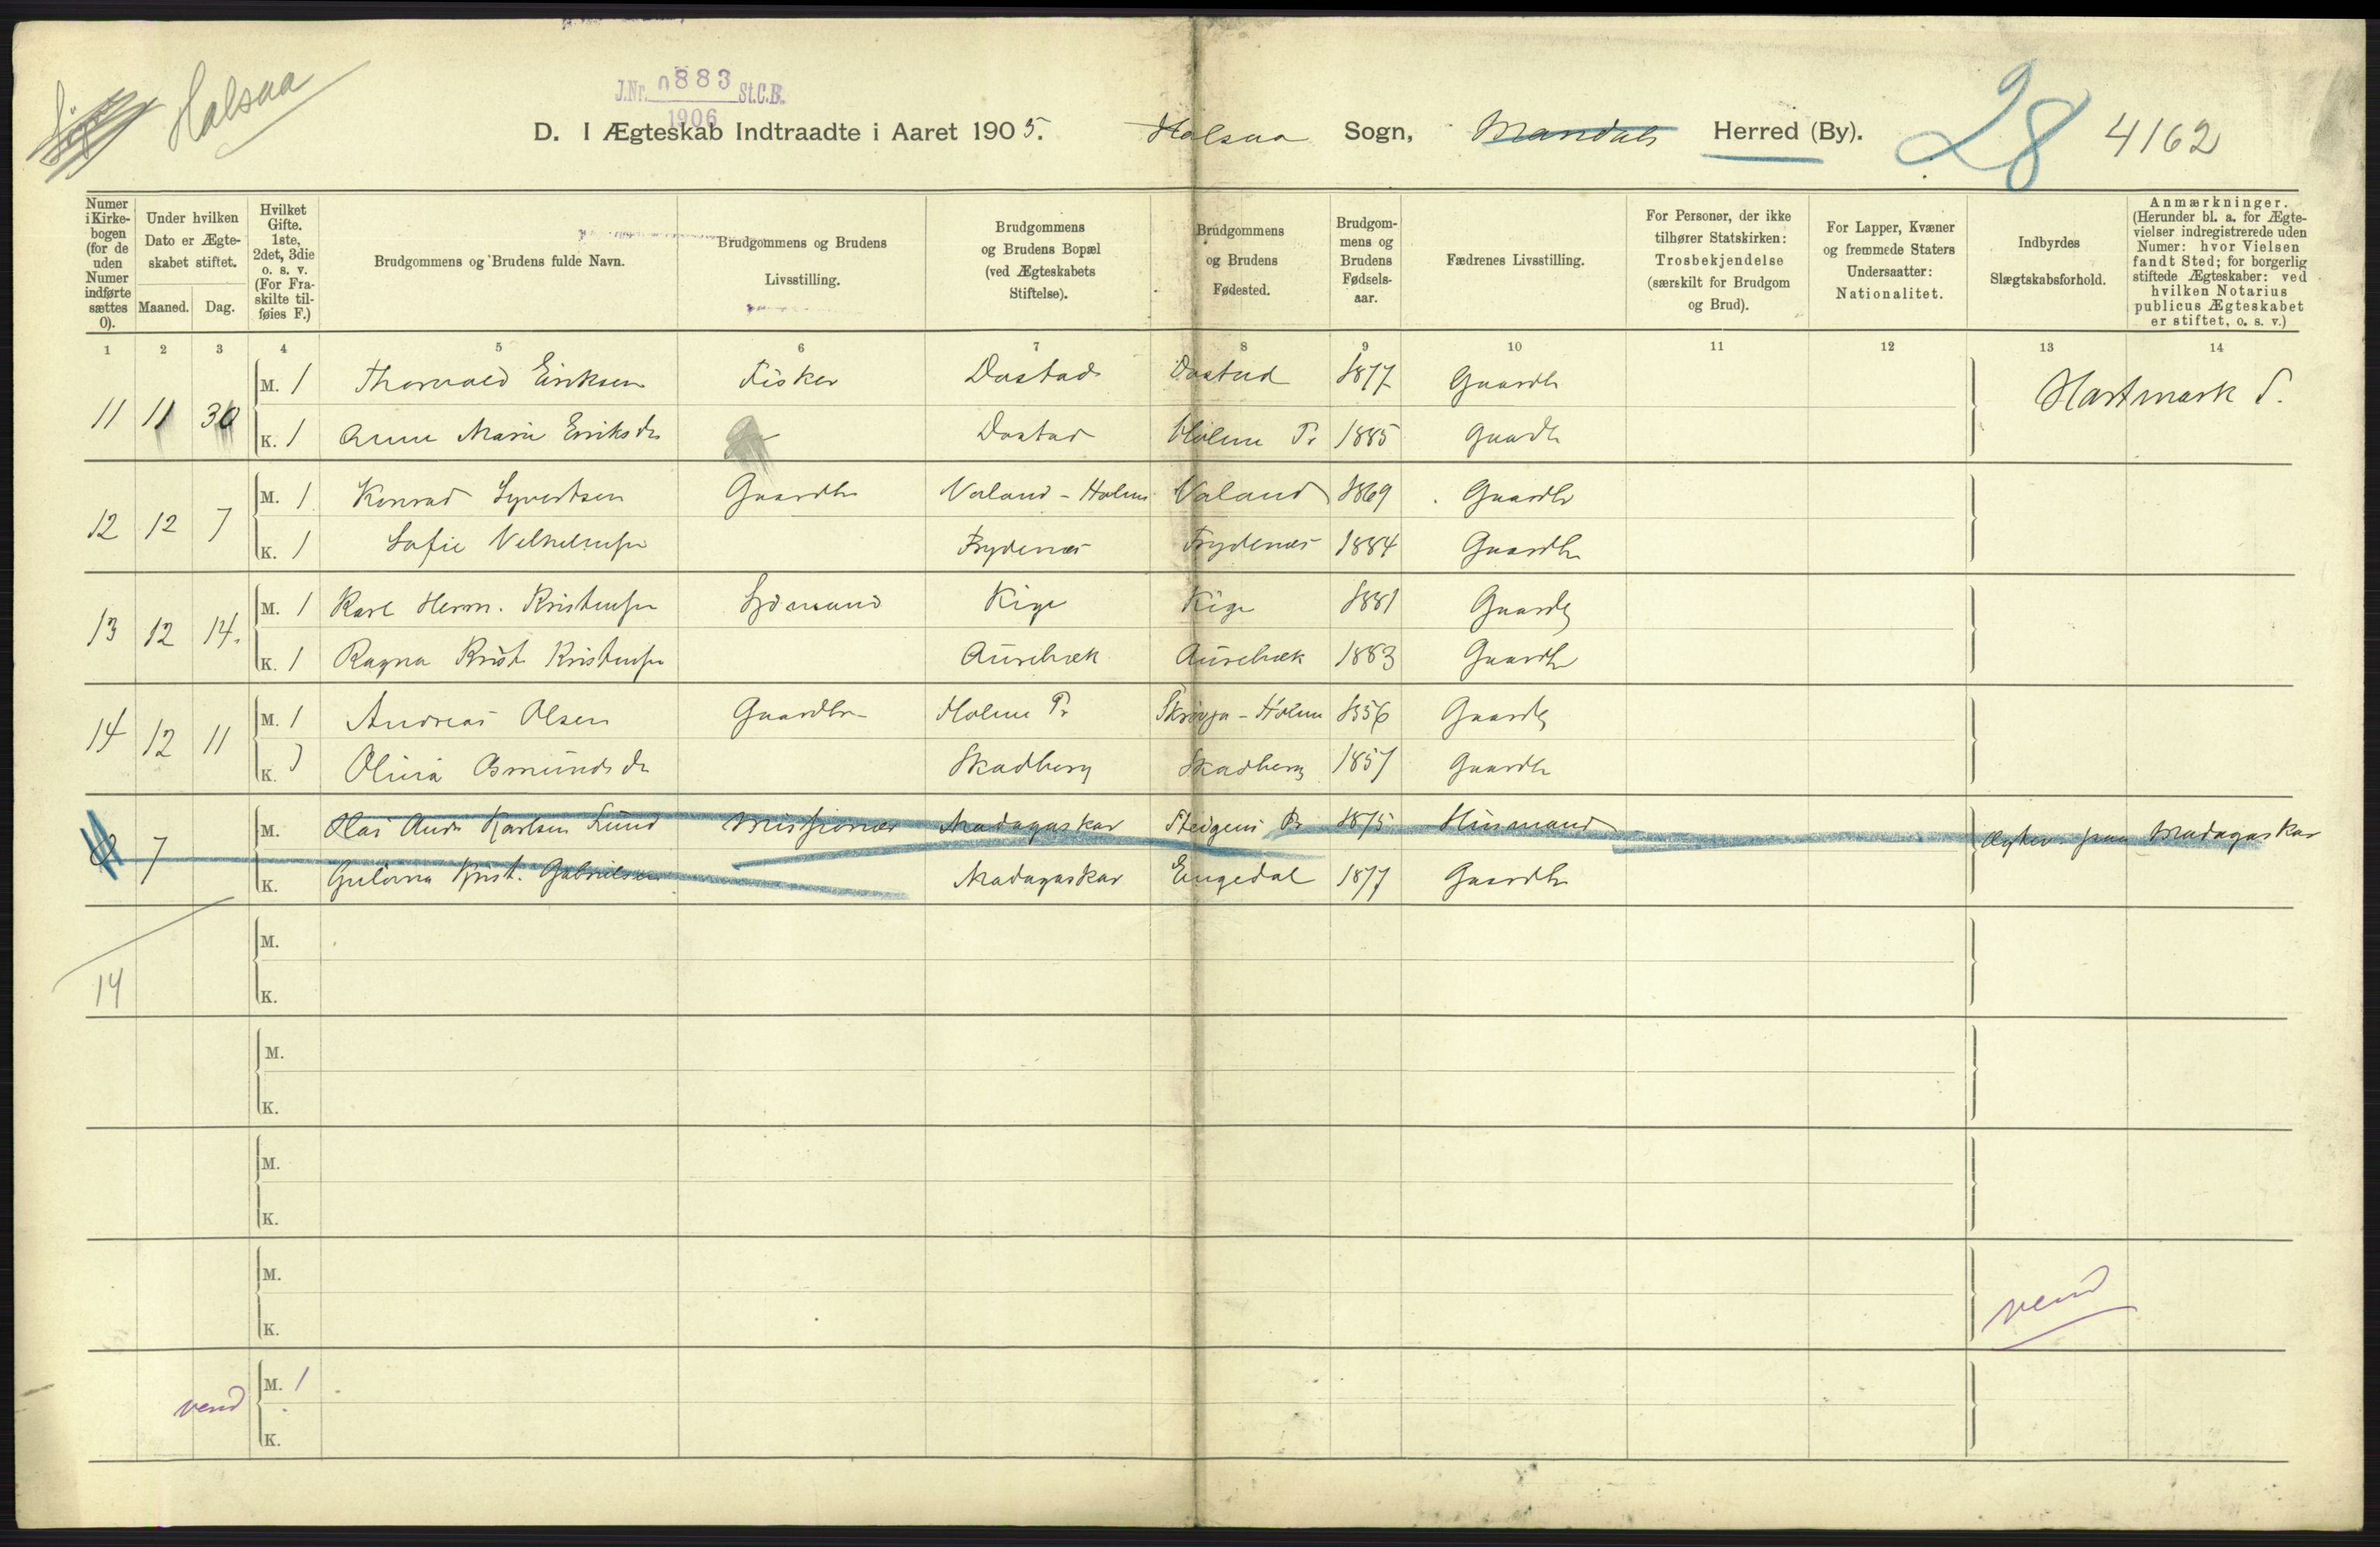 Halsaa
J.Nr. 0883 St.C.B.
1906
D. I Ægteskab Indtraadte i Aaret 1905. Halsaa Sogn, Mandals Herred (By). 28 4162
Numer i Kirkebogen (for de uden Numer indførte sættes 0).
Under hvilken Dato er Ægteskabet stiftet.
Maaned. Dag.
Hvilket Gifte. 1ste, 2det, 3die o. s. v. (For Fraskilte tilføies F.)
Brudgommens og Brudens fulde Navn.
Brudgommens og Brudens Livsstilling.
Brudgommens og Brudens Bopæl (ved Ægteskabets Stiftelse).
Brudgommens og Brudens Fødested.
Brudgommens og Brudens Fødselsaar.
Fædrenes Livsstilling.
For Personer, der ikke tilhører Statskirken: Trosbekjendelse (særskilt for Brudgom og Brud).
For Lapper, Kvæner og fremmede Staters Undersaatter: Nationalitet.
Indbyrdes Slægtskabsforhold.
Anmærkninger. (Herunder bl. a. for Ægtevielser indregistrerede uden Numer: hvor Vielsen fandt Sted; for borgerlig stiftede Ægteskaber: ved hvilken Notarius publicus Ægteskabet er stiftet, o. s. v.)
1 2 3 4 5 6 7 8 9 10 11 12 13 14
11 11 30 M. 1 Thorvald Eriksen Fisker Dastad Dastad 1877 Gaardbr Hartmark S.
K. 1 Anne Marie Eriksdr Dastad Holme Pr 1885 Gaardbr
12 12 7 M. 1 Konrad Syvertsen Gaardbr Valand - Holme Valand 1869 Gaardbr
K. 1 Sofie Vilhelmsen Frydenæs Frydenæs 1884 Gaardbr
13 12 14. M. 1 Karl Herm. Kristensen Sjømand Kige Kige 1881 Gaardbr
K. 1 Ragna Krist Kristensen Aurebæk Aurebæk 1883 Gaardbr
14 12 11 M. 1 Andreas Olsen Gaardbr Holme Pr Skrøvja - Holme 1856 Gaardbr
K. 1 Olivia Osmundsdr Skadberg Skadberg 1857 Gaardbr
7 M. Olai Andr Karlsen Lund Missionær Madagaskar Steigens Pr 1875 Husmand Ægtev. paa Madagaskar
K. Gulovna Krist. Gabrielsen Madagaskar Eugedal 1877 Gaardbr
M.
14 K.
M.
K.
M.
K.
M.
K. vend
vend M. 1
K.